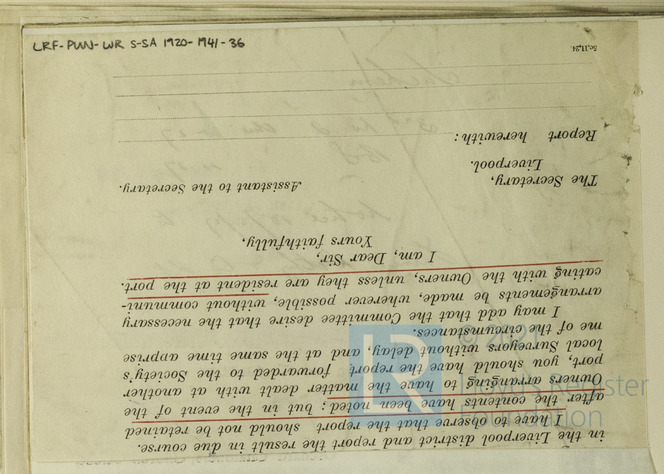 LRF-PUN-WR S-SA 1920-1941-36
in the Liverpool district and report the result in due course.
I have to observe that the report should not be retained
after the contents have been noted; but in the event of the
Owners arranging to have the matter dealt with at another
port, you should have the report forwarded to the Society's
local Surveyors without delay, and at the same time apprise
me of the circumstances.
I may add that the Committee desire that the necessary
arrangements be made, wherever possible, without communi-
cating with the Owners, unless they are resident at the port.
I am, Dear Sir,
Yours faithfully,
Assistant to the Secretary.
The Secretary,
Liverpool.
Report herewith:
5c.11,24
LR
© 2021
Lloyd's Register
Foundation